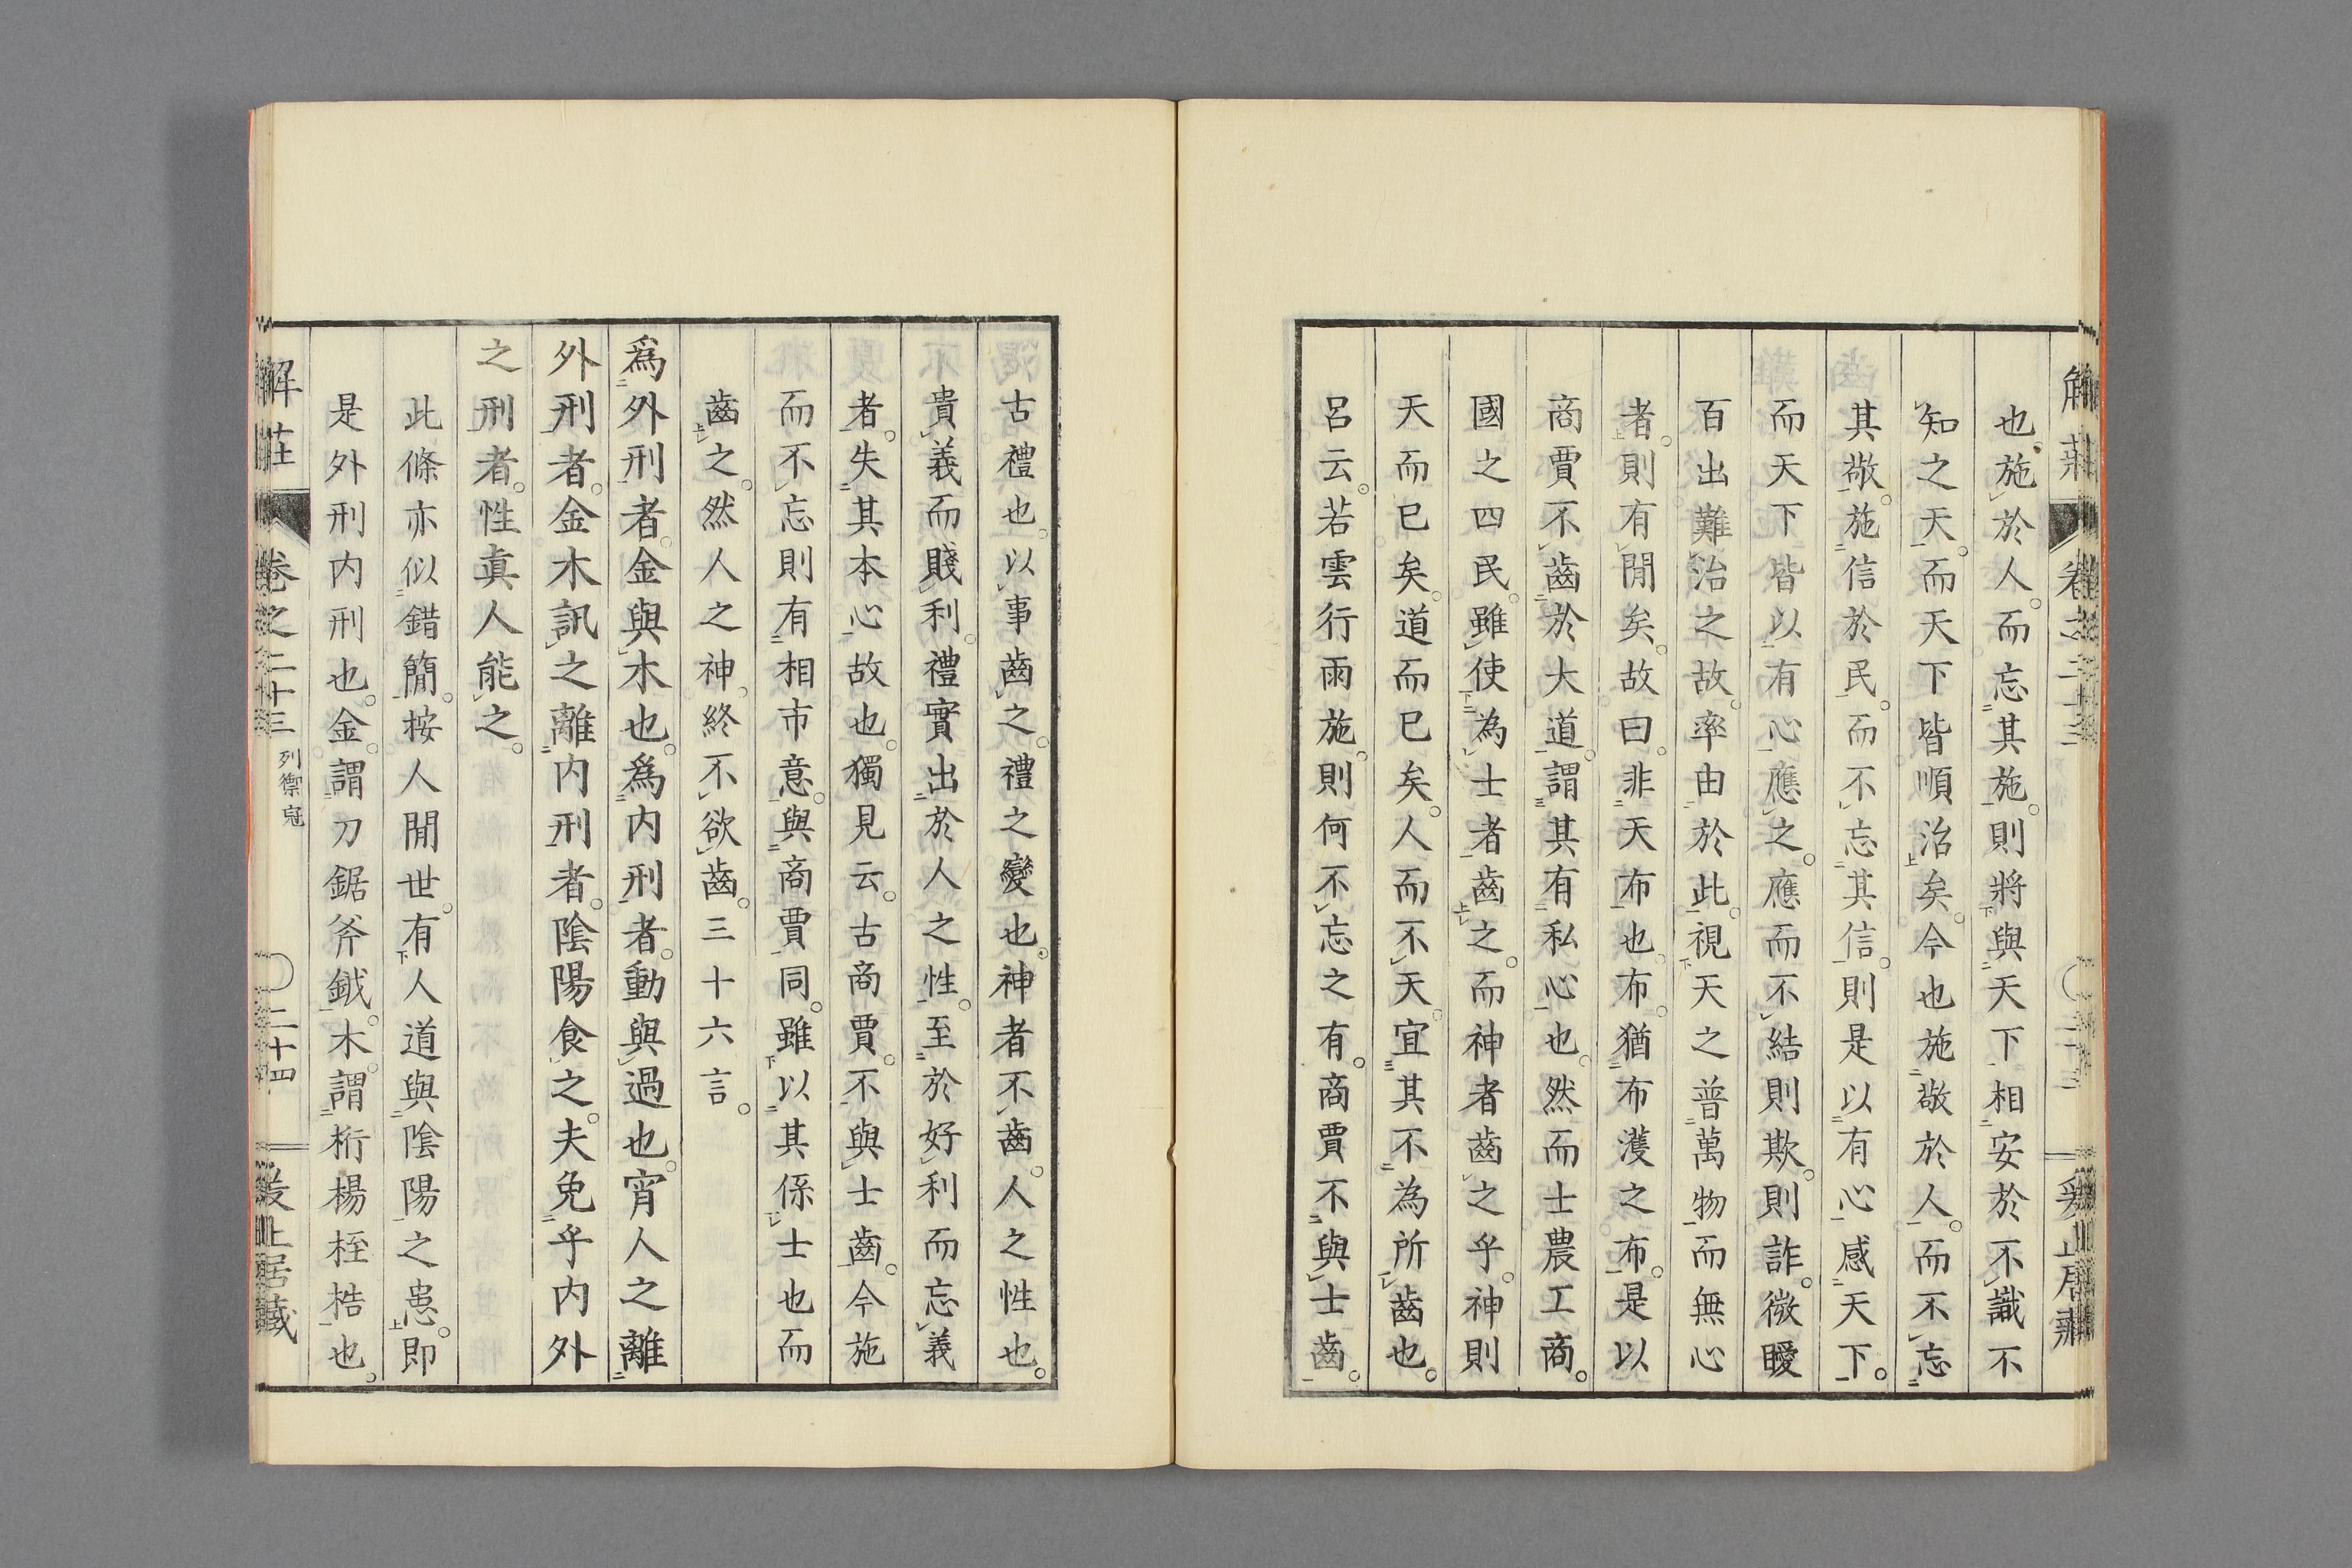 也施於人而忘其施則將與天下相安於不識不
知之天而天下皆順治矣今也施敬於人而不忘
其敬施信於民而不忘其信則是以有心感天下
而天下皆以有心應之應而不結則欺則詐微曖
百出難治之故率由於此視天之普萬物而無心
者則有閒矣故曰非天布也布猶布濩之布是以
商賈不齒於大道謂其有私心也然而士農工商
國之四民雖使為士者齒之而神者齒之乎神則
天而已矣道而已矣人而不天宜其不為所齒也
呂云若雲行雨施則何不忘之有商賈不與士齒
古禮也以事齒之禮之變也神者不齒人之性也
貴義而賤利禮實出於人之性至於好利而忘義
者失其本心故也獨見云古商賈不與士齒今施
而不忘則有相市意與商賈同雖以其係士也而
齒之然人之神終不欲齒三十六言
爲外刑者金與木也爲内刑者動與過也宵人之離
外刑者金木訊之離内刑者陰陽食之夫免乎内外
之刑者性眞人能之
此條亦似錯簡桉人閒世有人道與陰陽之患即
是外刑内刑也金謂刀鋸斧鉞木謂桁楊桎梏也
解莊 卷之二十三 列禦寇 二十四